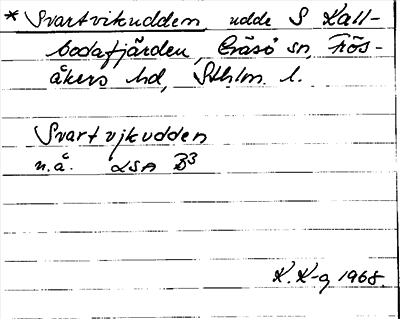 * Svartvikudden udde S Kall-
bodafjärden, Gräsö sn, Frös-
åkers hd, Sthlm l.
Svartvjkudden
n.å. LSA B3
K. K-g 1968.